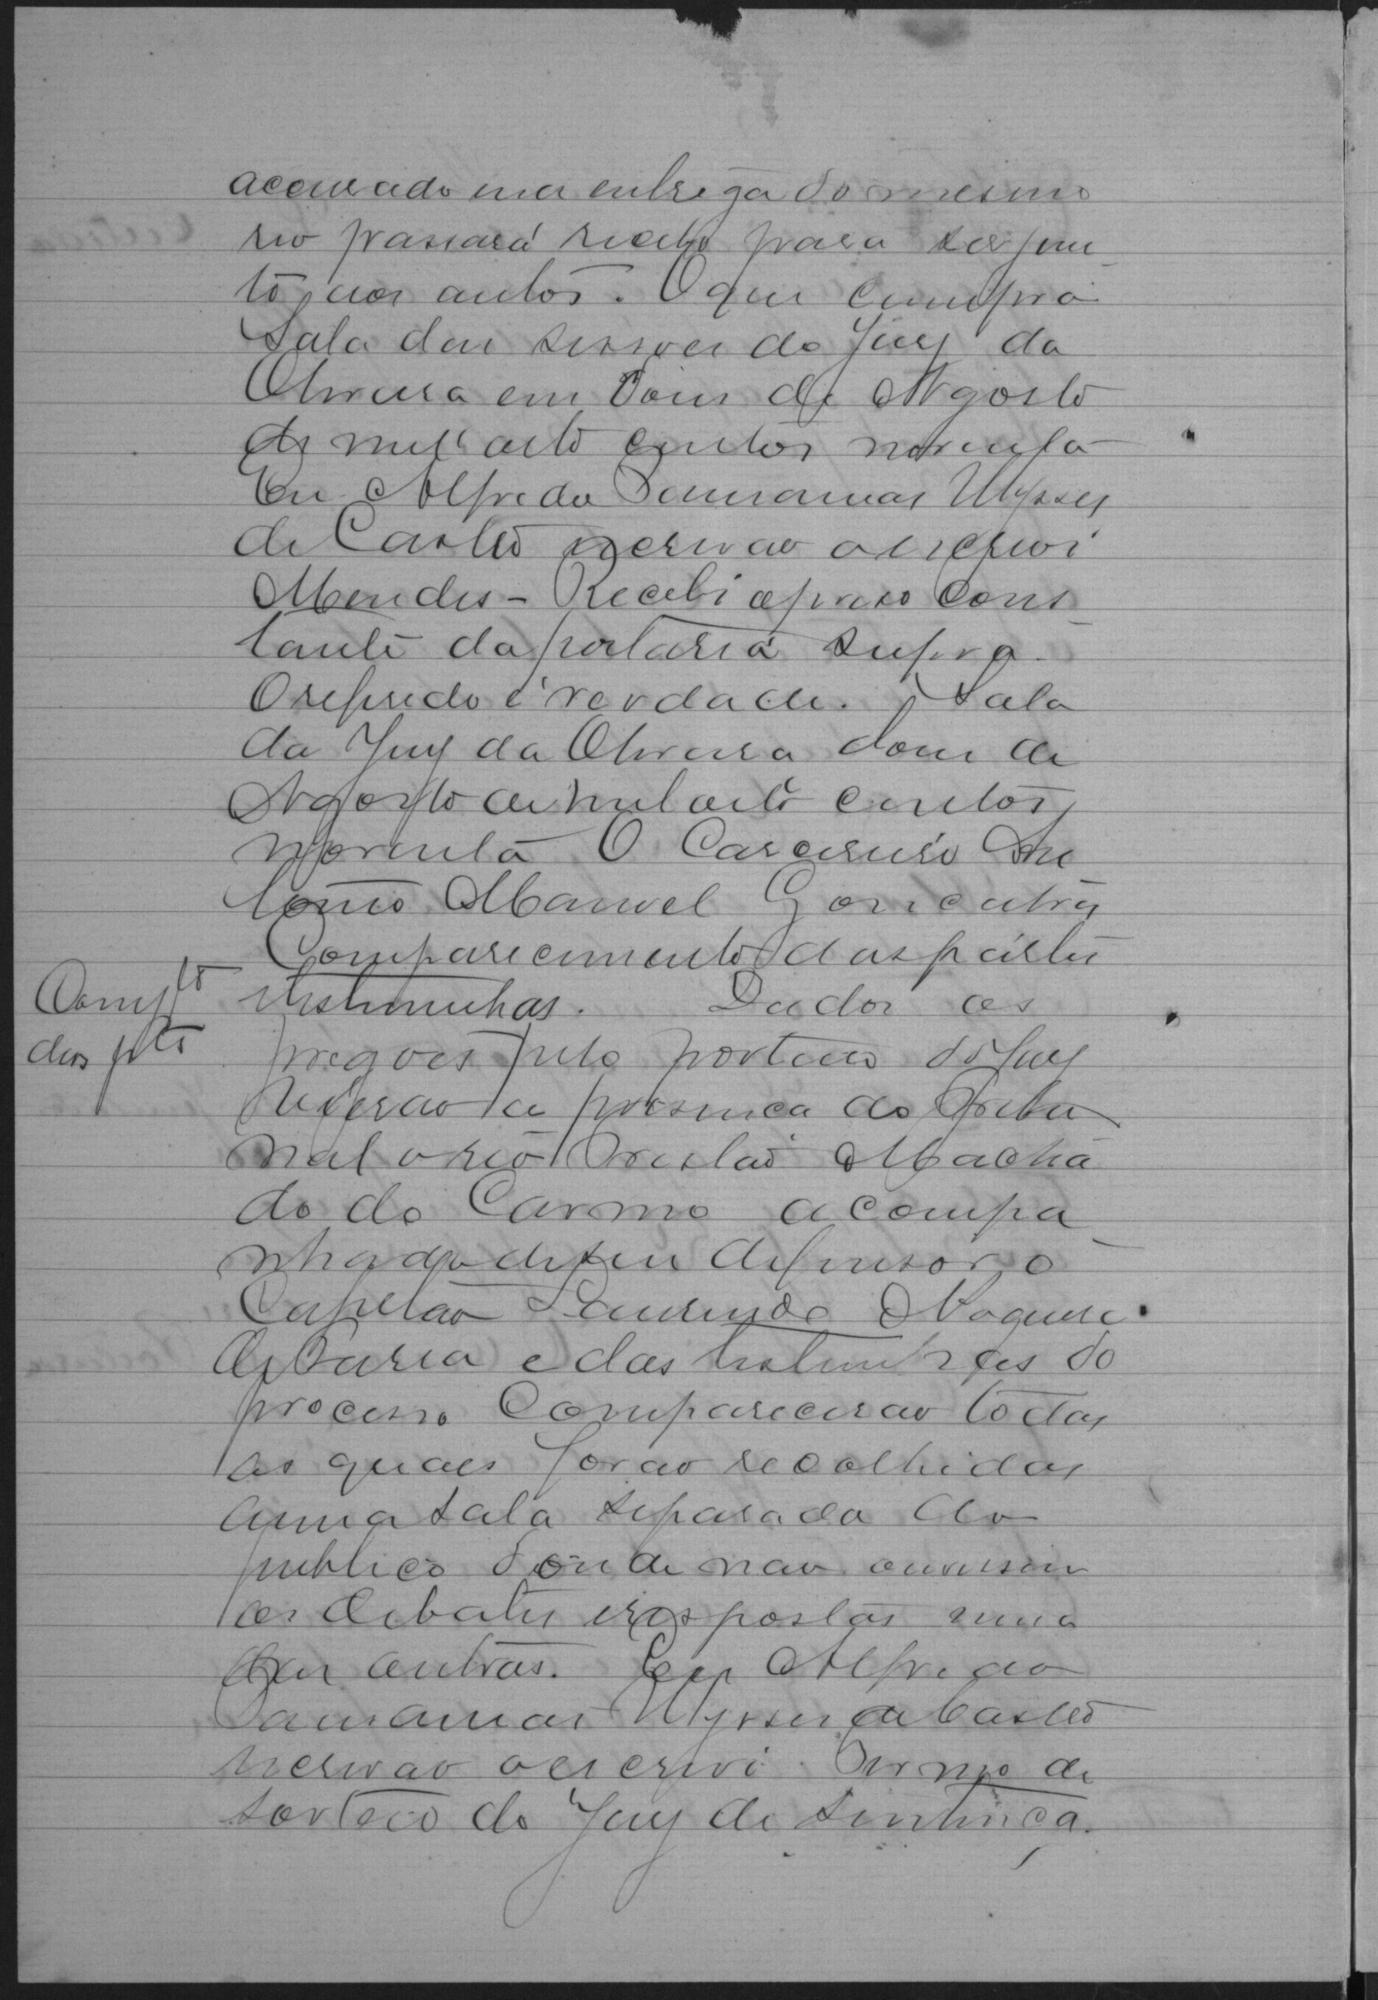 accusado na entrega do mesmo
reo passará recibo para ser jun
to aos autos. O que cumpra
Sala das sessoes do Jury da
Oliveira em dois de Agosto
de mil oito centos noventa
Eu Alfredo Ulysses
de Castro escrivao o escrevi
Mendes - Recebi o preso cons
tante da portaria supra.
O referido é verdade. Sala
do Jury da Oliveira dois de
Agosto de mil oito centos
noventa O Carcereiro An
tonio Manoel Goncalves
Comparecimento das partes
Comp.to
dos p.tes
e testimunhas. Dados os
pregoes pelo porteiro do Jury
vierao a presenca do Tribu
nal o reo Machá
do do Carmo acompa
nhado de seu defensor o
Capitao Laurindo Nogueira
de Faria e das testimunhas do
processo Comparecerao todas
as quaes forao recolhidas
a uma sala separada do
publico donde nao ouvissem
os debates e respostas umas
das outras. Eu Alfredo
Ulysses de Castro
escrivao o escrevi. Termo de
sorteio do Jury de sentença.